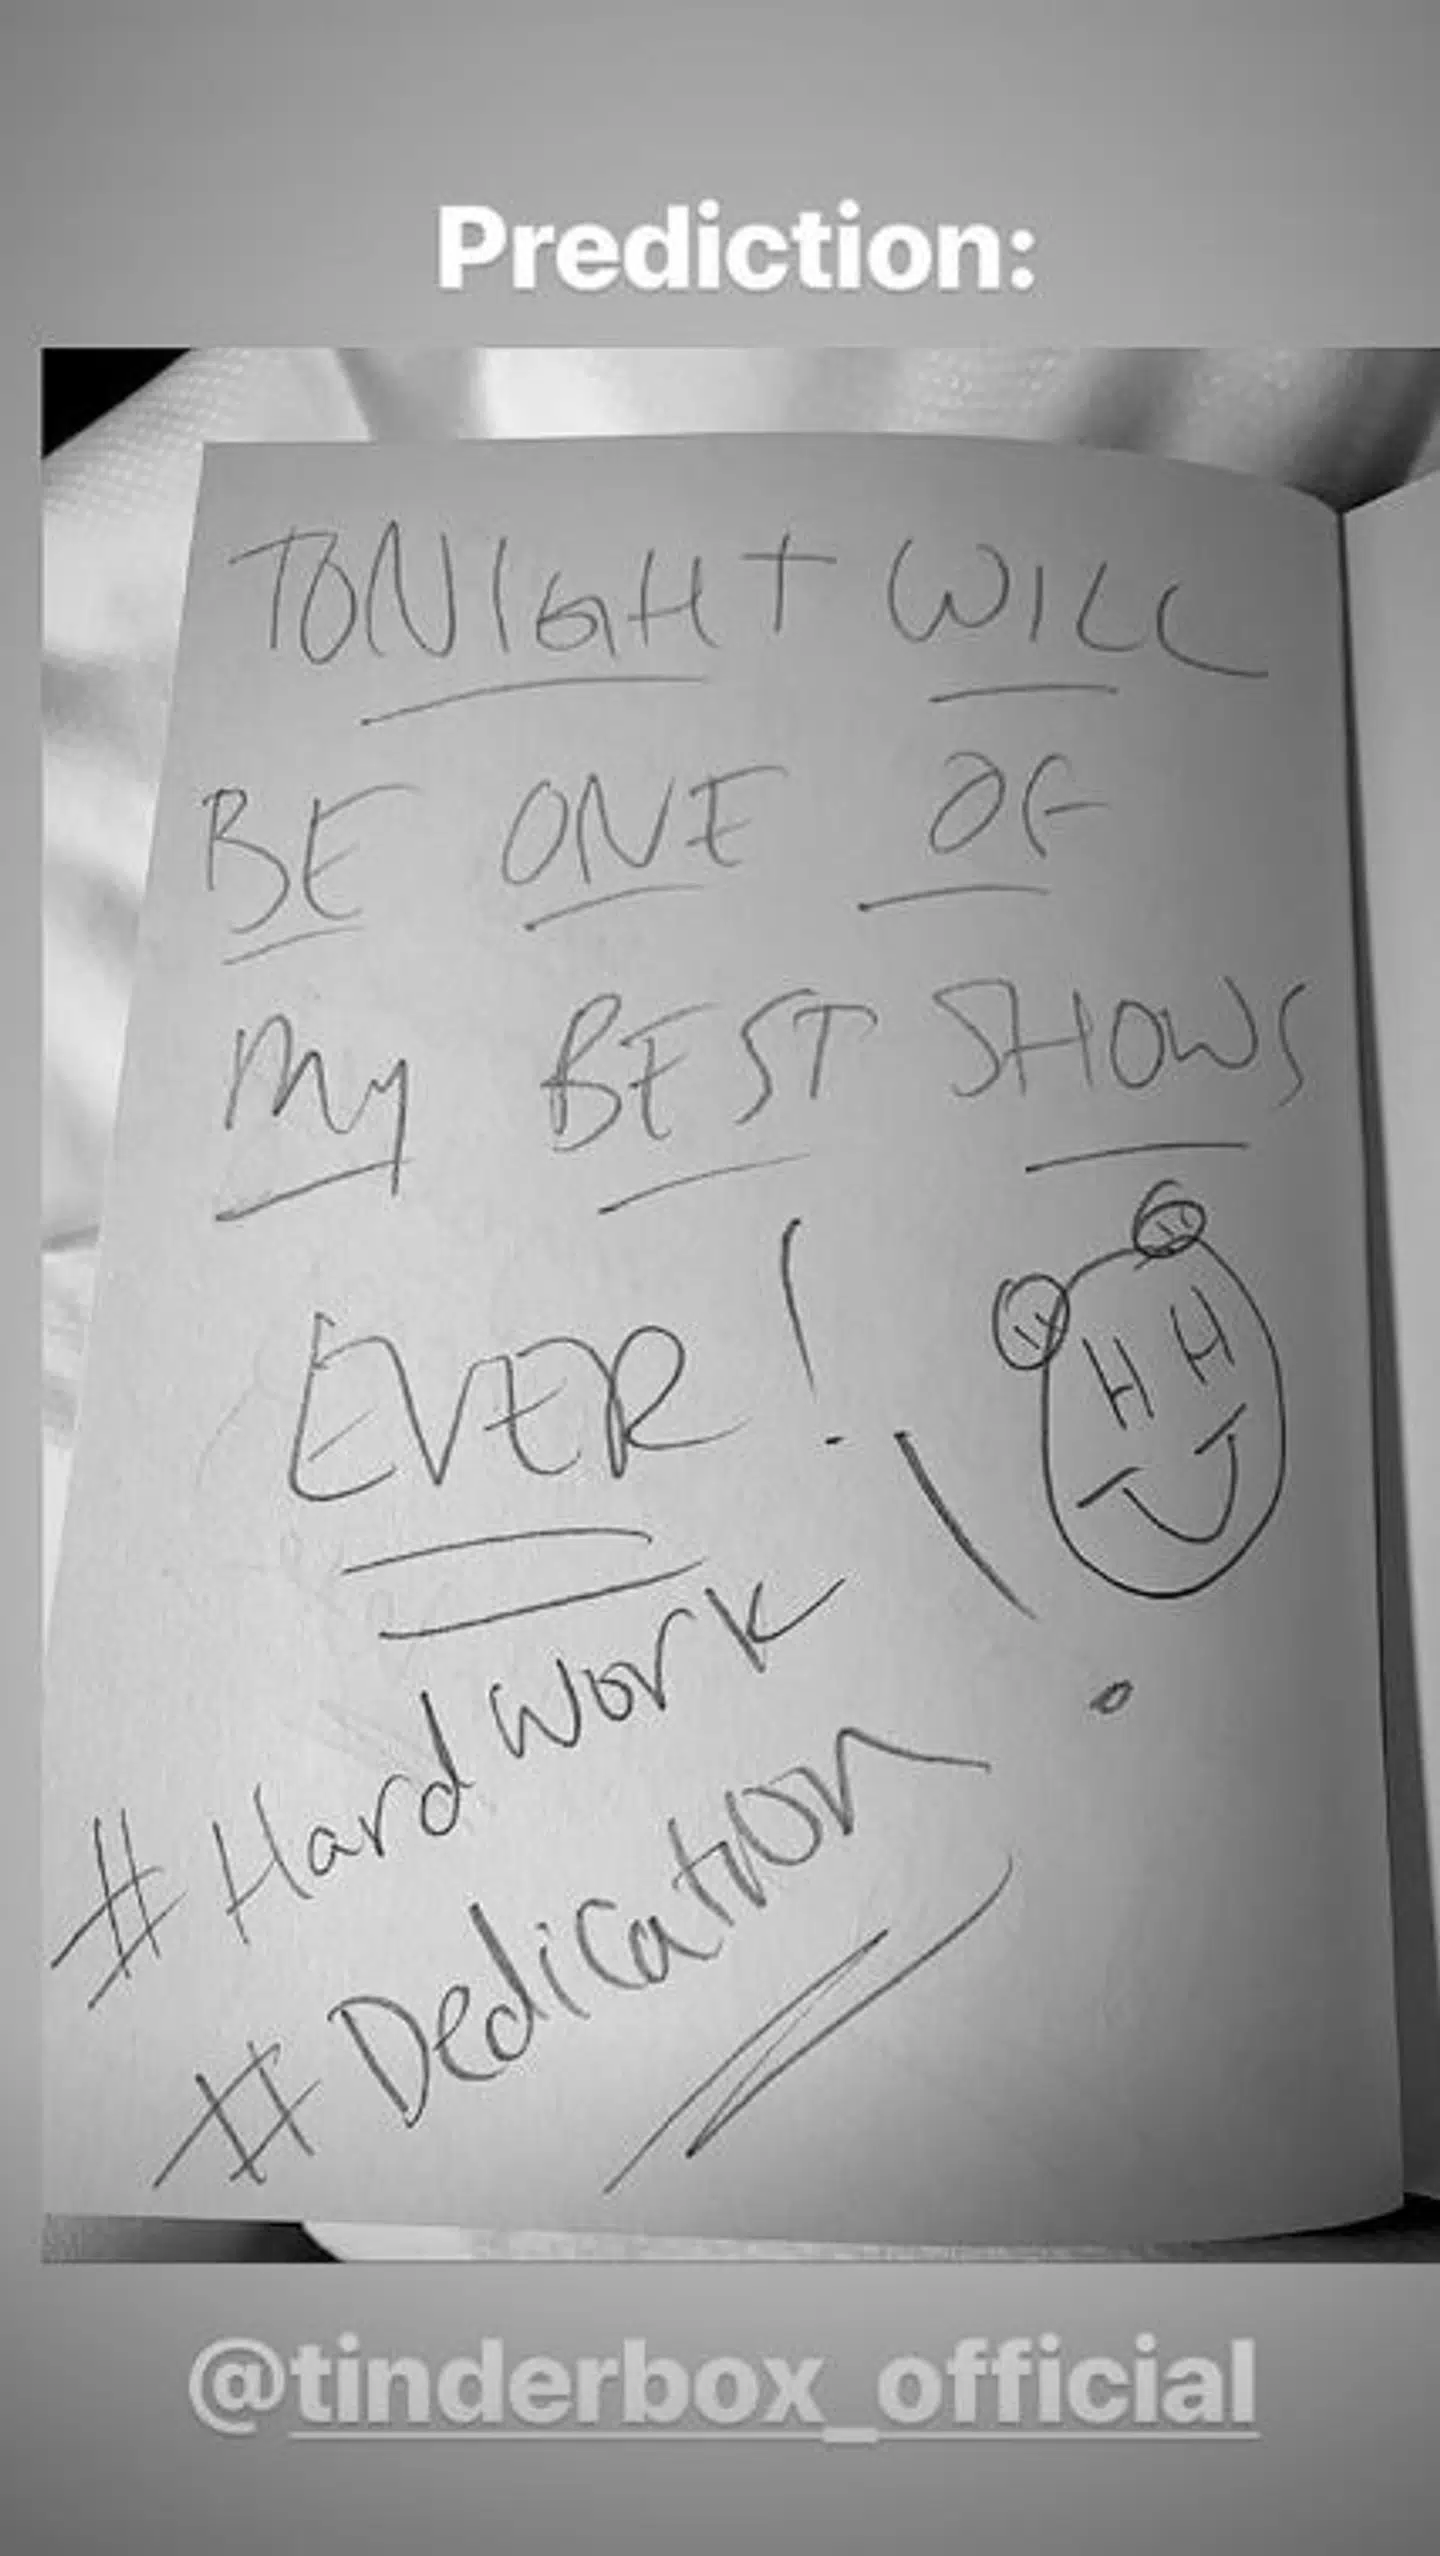 Prediction:
TONIGHT WILL
BE ONE OF
My BEST SHOWS
EVER!
H H
# Hard Work
# Dedication
@tinderbox_official